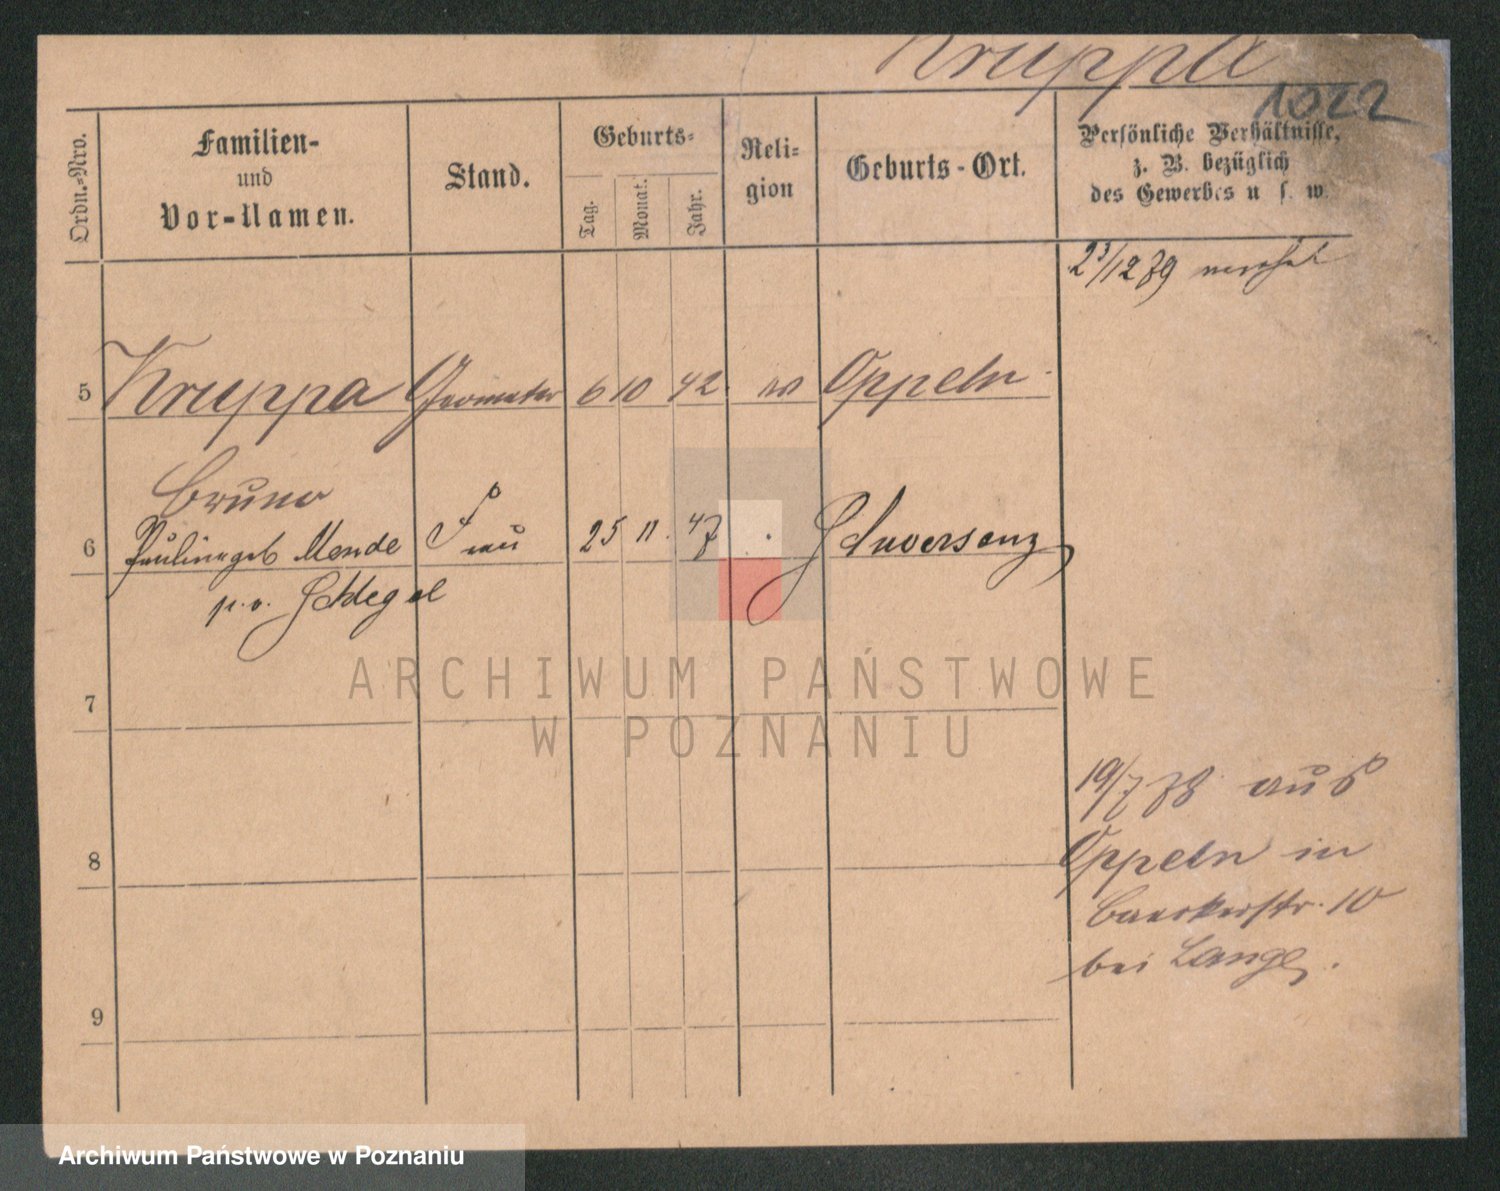 Kruppa
1022
Ordn.-Nro.
Familien-
und
Vor-Namen.
Stand.
Geburts-
Tag.
Monat.
Jahr.
Reli-
gion
Geburts-Ort.
Persönliche Verhältnisse,
z. B. bezüglich
des Gewerbes u. s. w.
23/12 79
5 Kruppa Geometer 6 10 42. Oppeln
Bruno
6 geb Mende Frau 25 11. 47
p. v. Schlegel
7
ARCHIWUM PAŃSTWOWE
W POZNANIU
19/7 78 aus
8 Oppeln in
10
bei Lange.
9
Archiwum Państwowe w Poznaniu